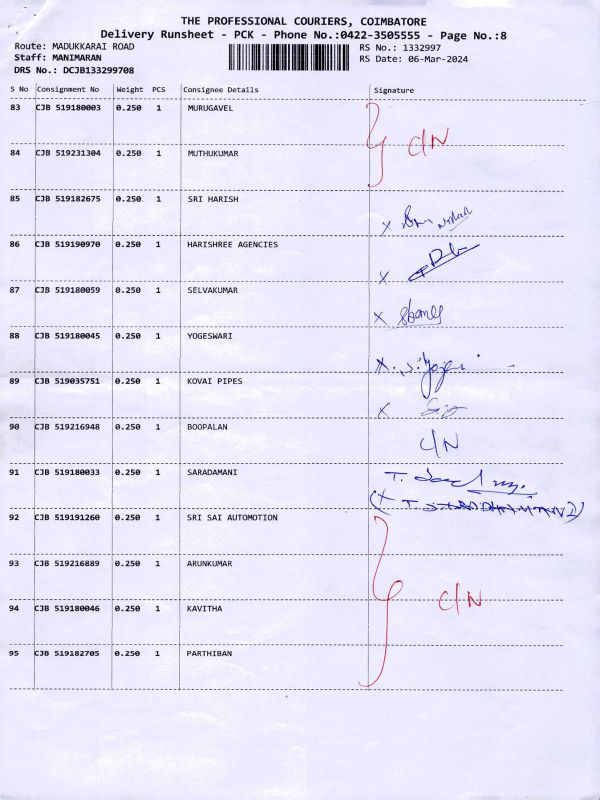 THE PROFESSIONAL COURIERS, COIMBATORE
Delivery Runsheet - PCK - Phone No.:0422-3505555 - Page No.:8
Route: MADUKKARAI ROAD RS No.: 1332997
Staff: MANIMARAN RS Date: 06-Mar-2024
DRS No.: DCJB133299708
S No Consignment No Weight PCS Consignee Details Signature
83 CJB 519180003 0.250 1 MURUGAVEL
C/N
84 CJB 519231304 0.250 1 MUTHUKUMAR
85 CJB 519182675 0.250 1 SRI HARISH
X
86 CJB 519190970 0.250 1 HARISHREE AGENCIES
X
87 CJB 519180059 0.250 1 SELVAKUMAR
X
88 CJB 519180045 0.250 1 YOGESWARI
X. S. Yoge
89 CJB 519035751 0.250 1 KOVAI PIPES
X
90 CJB 519216948 0.250 1 BOOPALAN
C/N
91 CJB 519180033 0.250 1 SARADAMANI
T.
(X T.
92 CJB 519191260 0.250 1 SRI SAI AUTOMOTION
93 CJB 519216889 0.250 1 ARUNKUMAR
C/N
94 CJB 519180046 0.250 1 KAVITHA
95 CJB 519182705 0.250 1 PARTHIBAN